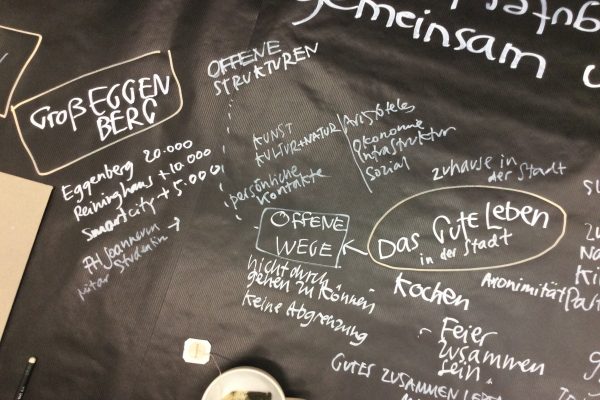 gemeinsam u
GroßEGGEN
BERG
OFFENE
STRUKTUREN
Eggenberg 20.000
Reininghaus + 10.000
Smartcity + 5.000
FH Joanneum
KUNST
KULTUR + NATUR
persönliche
Kontakte
Aristoteles
Ökonomie
Infrastruktur
Sozial
zuhause in
der Stadt
OFFENE
WEGE
Das Gute Leben
in der Stadt
nicht durch
gehen zu können
keine Abgrenzung
Kochen
Anonimität
- Feier
zusammen
sein.
GUTES ZUSAMMEN LEBEN